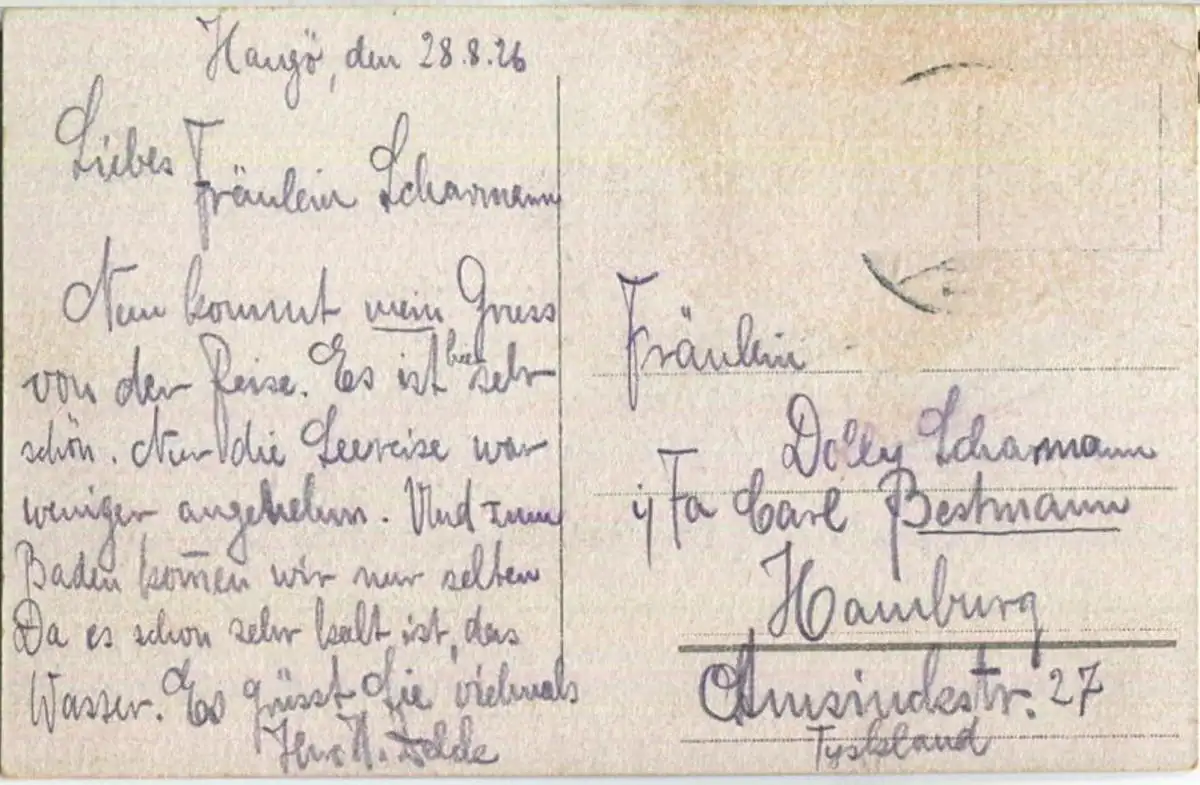 Hangö, den 28.8.26
Liebes Fräulein Scharmann
Nun kommt mein Gruss
von der Reise. Es ist hier sehr
schön. Nur die Seereise war
weniger angenehm. Und zum
Baden kom̄en wir nur selten
Da es schon sehr kalt ist, das
Wasser. Es grüsst Sie vielmals
Fräulein
Dolly Scharmann
i/Fa Carl Bestmann
Hamburg
Amsinckstr. 27
Tyskland